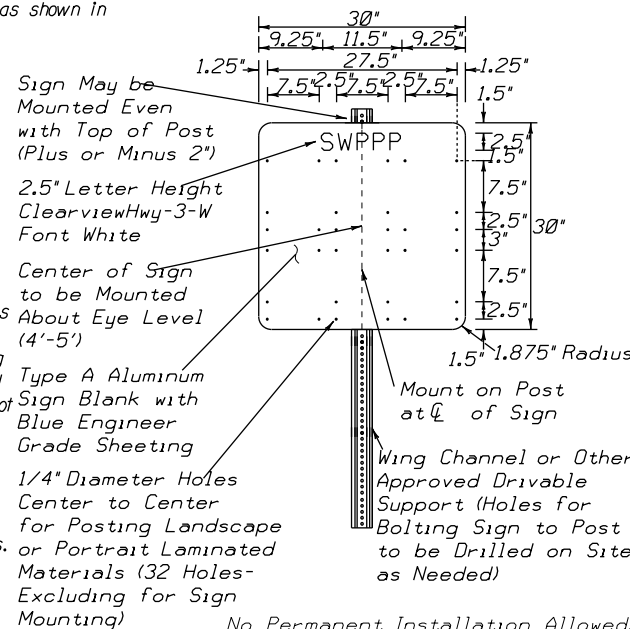 as shown in
30"
9.25" 11.5" 9.25"
1.25" 27.5" 1.25"
7.5" 2.5" 7.5" 2.5" 7.5"
1.5"
2.5"
1.5"
7.5"
2.5"
3"
7.5"
2.5"
1.5"
30"
SWPPP
Sign May be
Mounted Even
with Top of Post
(Plus or Minus 2")
2.5" Letter Height
ClearviewHwy-3-W
Font White
Center of Sign
to be Mounted
s About Eye Level
(4'-5')
Type A Aluminum
ot Sign Blank with
Blue Engineer
Grade Sheeting
1/4" Diameter Holes
Center to Center
for Posting Landscape
s. or Portrait Laminated
Materials (32 Holes-
Excluding for Sign
Mounting)
1.875" Radius
Mount on Post
at ℄ of Sign
Wing Channel or Other
Approved Drivable
Support (Holes for
Bolting Sign to Post
to be Drilled on Site
as Needed)
No Permanent Installation Allowed